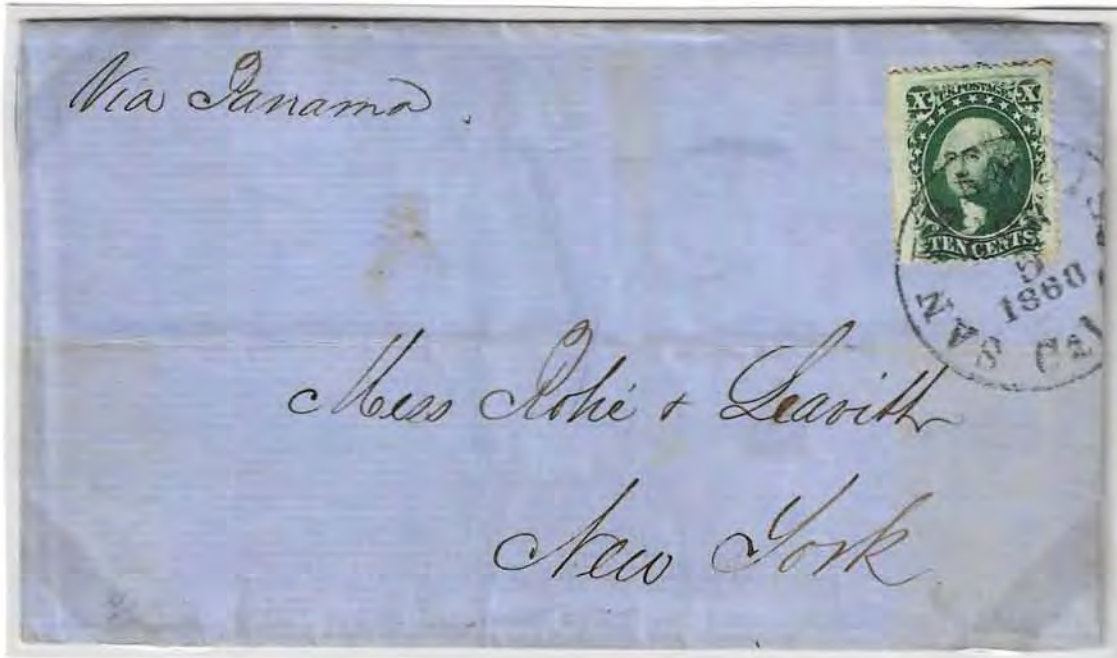 Via Panama.
X U.S. POSTAGE X
TEN CENTS
SAN
5
1860
Cal
Mess Rohé & Leavitt
New York